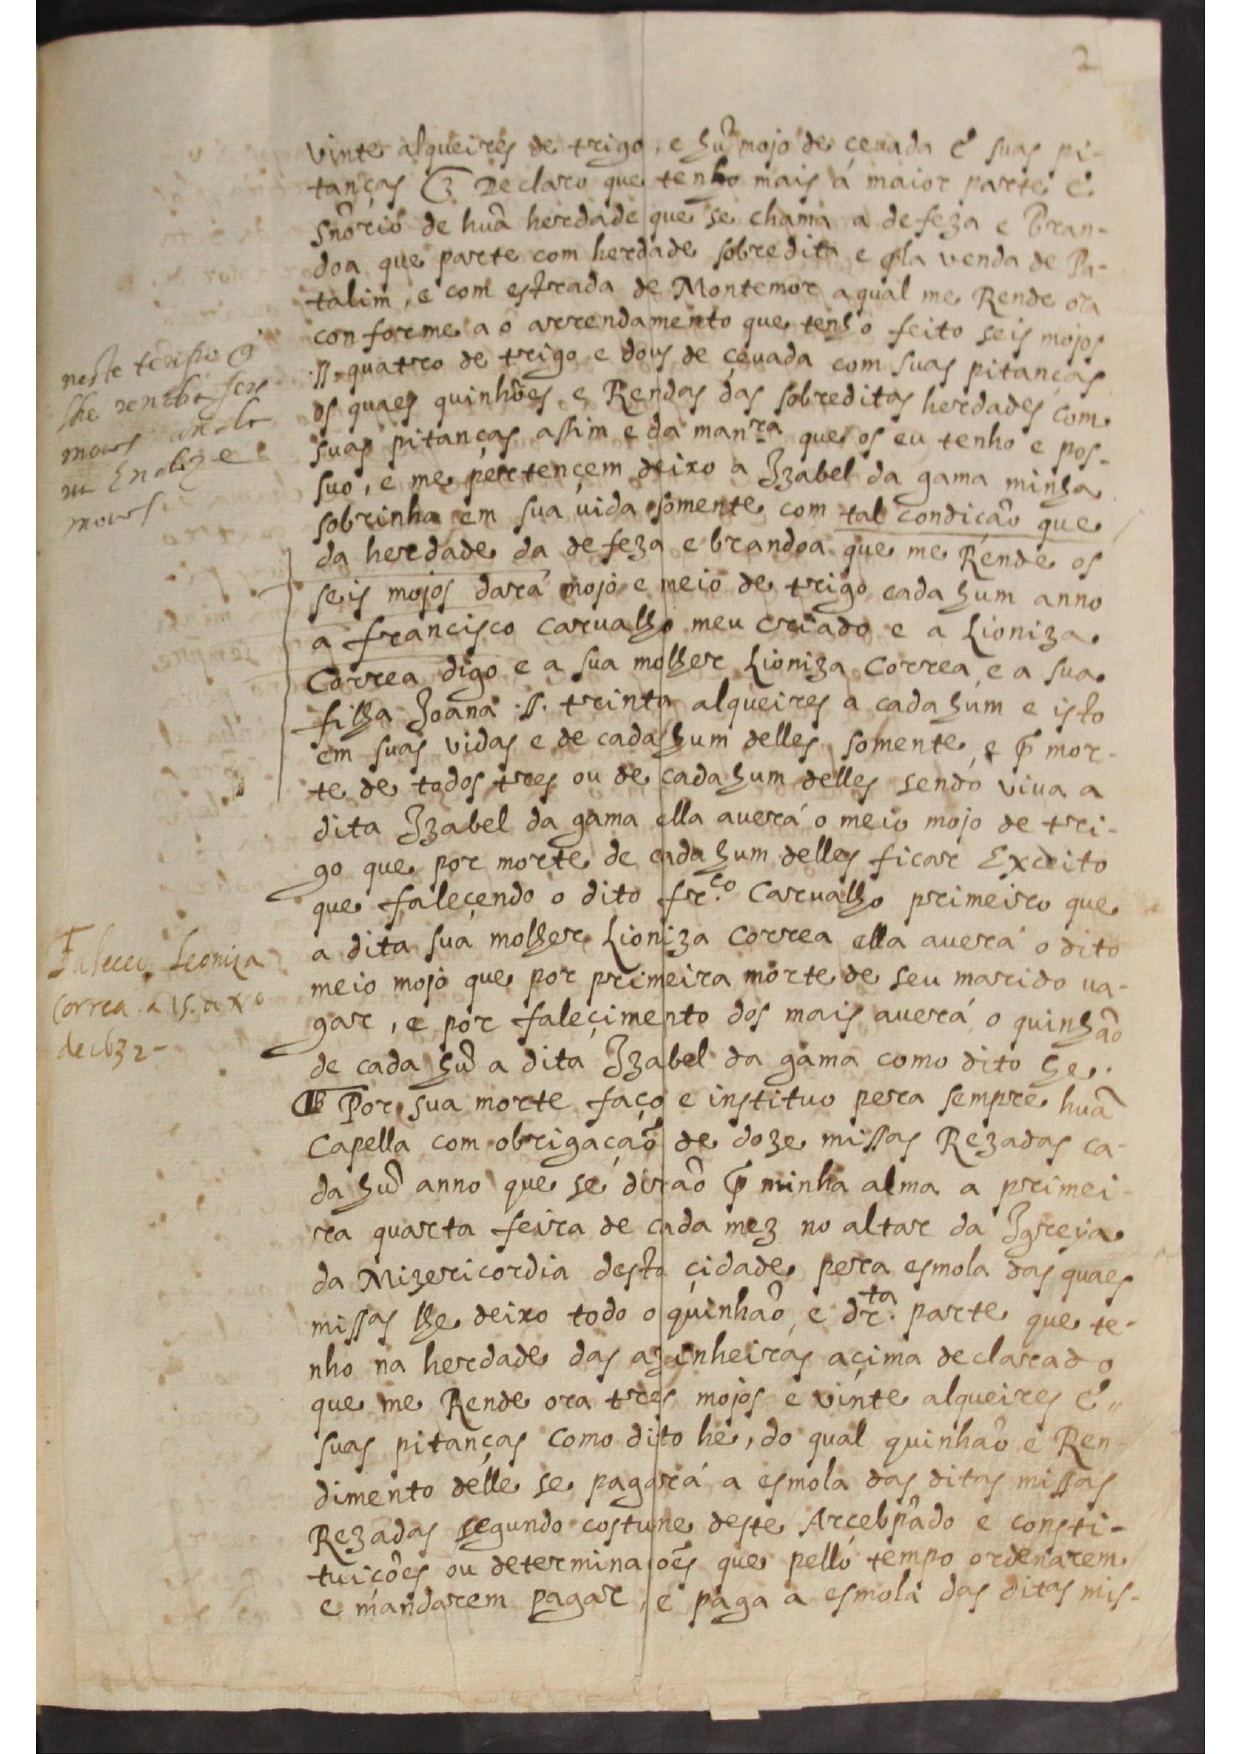 2
vinte alqueires de trigo, e hũ mojo de çeuada e suas pi-
tanças Declaro que tenho mais a maior parte e
sñorio de huã herdade que se chama a defeza e Bran-
doa que parte com herdade sobredita e pla venda de Pa-
talim, e com estrada de Montemor aqual me Rende ora
conforme a o arrendamento que tenho feito seis mojos
.s. quatro de trigo e dous de çeuada com suas pitanças
os quaes quinhões e Rendas das sobreditas herdades com
suas pitanças assim e da manra que os eu tenho e pos-
suo, e me pertençem deixo a Izabel da gama minha
sobrinha em sua uida somente com tal condição que
da herdade da defeza e brandoa que me Rende os
seis mojos dará mojo e meio de trigo cada hum anno
a francisco Carualho meu criado e a Lioniza
Correa digo e a sua molher Lioniza Correa e a sua
filha Joana .s. trinta alqueires a cada hum e isto
em suas vidas e de cada hum delles somente, e p mor-
te de todos tres ou de cada hum delles sendo viua a
dita Izabel da gama ella auerá o meio mojo de tri-
go que por morte de cada hum delles ficar Exceito
que faleçendo o dito frco Carualho primeiro que
a dita sua molher Lioniza Correa ella auerá o dito
meio mojo que por primeira morte de seu marido ua-
gar, e por faleçimento dos mais auerá o quinhão
de cada hũ a dita Izabel da gama como dito he.
Por sua morte faço e instituo pera sempre huã
Capella com obrigação de doze missas Rezadas ca-
da hũ anno que se dirão p minha alma a primei-
ra quarta feira de cada mez no altar da Igreia
da Mizericordia desta çidade pera esmola das quaes
missas lhe deixo todo o quinhaõ, e drta parte que te-
nho na herdade das azinheiras açima declarado
que me Rende ora tres mojos e vinte alqueires e
suas pitanças como dito he, do qual quinhaõ e Ren-
dimento delle se pagará a esmola das ditas missas
Rezadas segundo costume deste Arcebpado e consti-
tuicões ou determinações que pello tempo ordenarem
e mandarem pagar, e paga a esmola das ditas mis-
neste tempo
lhe
mouos
mouos
Faleceo Leoniza
Correa a 15. de xo
de 1632-